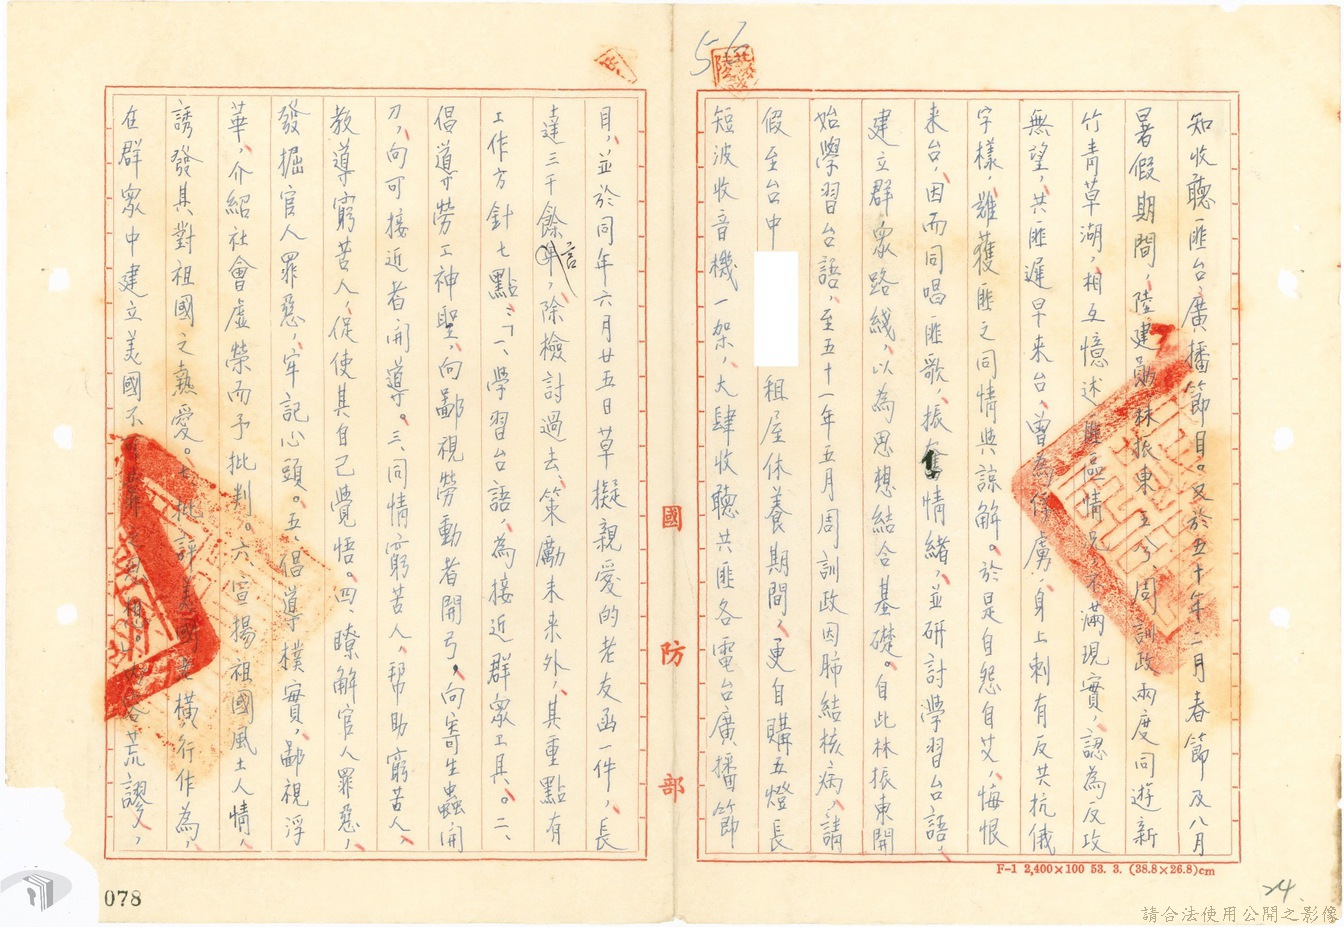 知收聽匪台廣播節目。又於五十年二月春節及八月
暑假期間,陸建勛、林振東、王 、周訓政兩度同遊新
竹青草湖,相互憶述匪區情 不滿現實,認為反攻
無望,共匪遲早來台,曾為俘虜,身上刺有反共抗俄
字樣,難獲匪之同情與諒解。於是自怨自艾,悔恨
來台,因而同唱匪歌,振奮情緒,並研討學習台語。
建立群眾路綫,以為思想結合基礎。自此林振東開
始學習台語,至五十一年五月周訓政因肺結核病,請
假至台中 租屋休養期間,更自購五燈長
短波收音機一架,大肆收聽共匪各電台廣播節
目,並於同年六月廿五日草擬親愛的老友函一件,長
達三千餘言,除檢討過去、策勵未來外,其重點有
工作方針七點:「一、學習台語,為接近群眾工具。二、
倡導勞工神聖,向鄙視勞動者開弓,向寄生蟲開
刀,向可接近者開導。三、同情窮苦人,幫助窮苦人,
教導窮苦人,促使其自己覺悟。四、瞭解官人罪惡,
發掘官人罪惡,牢記心頭。五、倡導樸實,鄙視浮
華,介紹社會虛榮而予批判。六、宣揚祖國風土人情,
誘發其對祖國之熱愛。七、批評美國 橫行作為,
在群眾中建立美國不 荒謬,
國防部
F-1 2,400×100 53. 3. (38.8×26.8)cm
078
24
請合法使用公開之影像